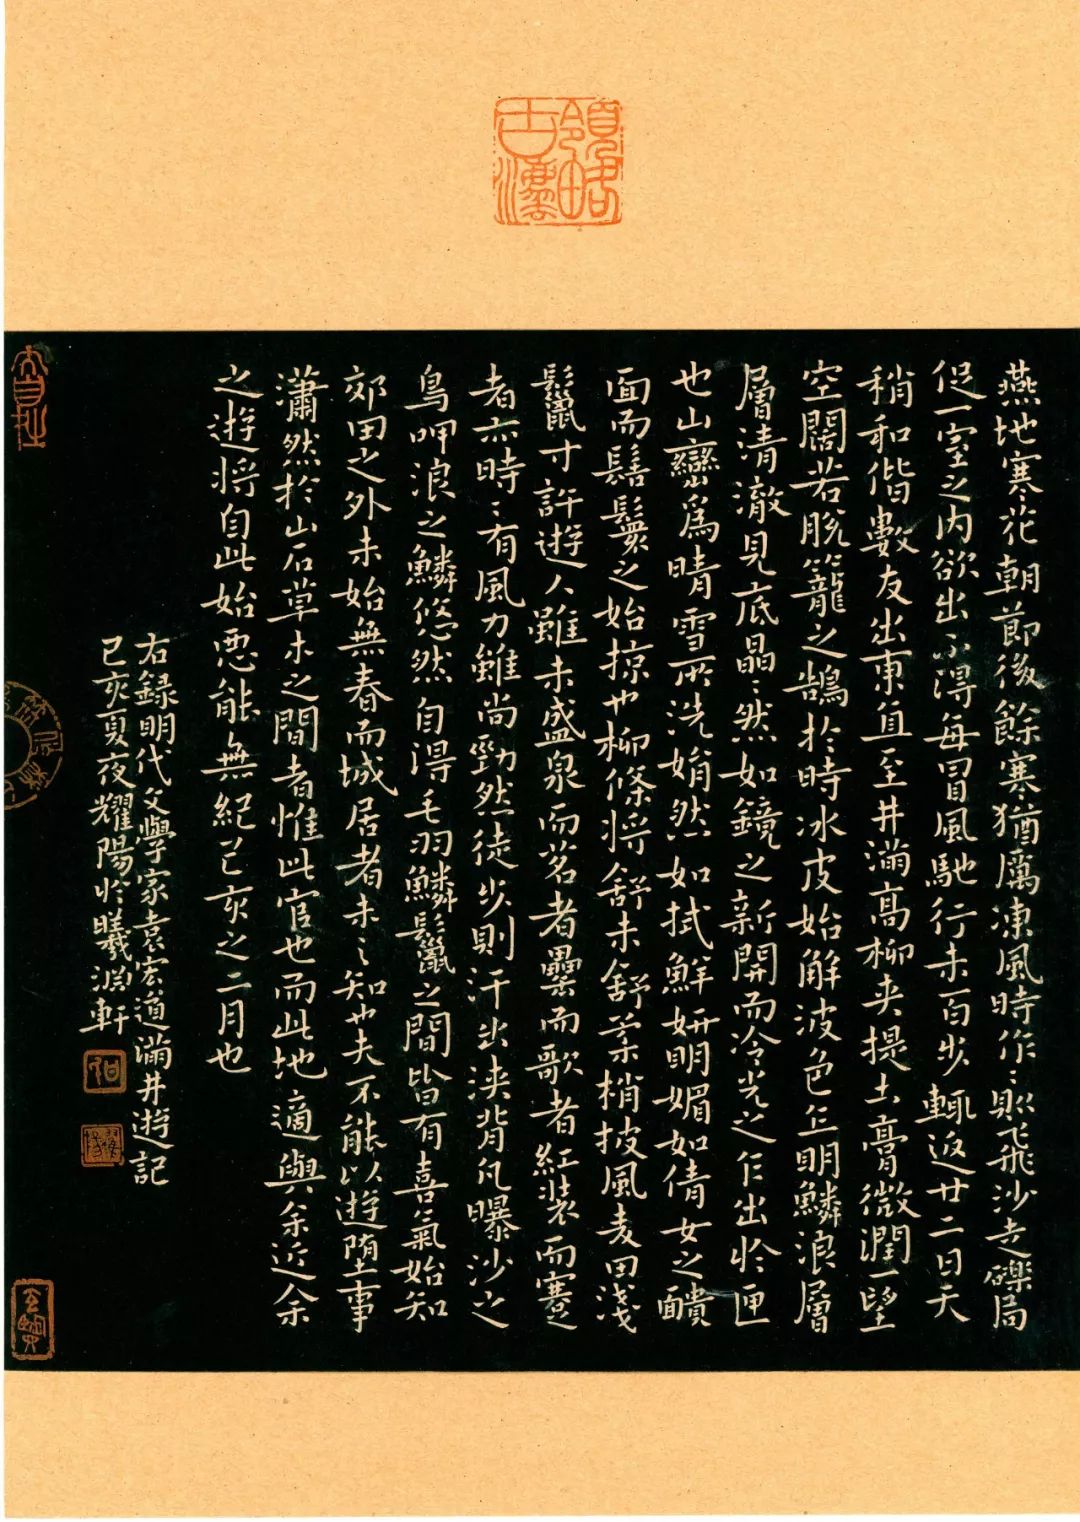 領略古灋
燕地寒花朝節後餘寒猶厲凍風時作〻則飛沙走礫局
促一室之內欲出不得每冒風馳行未百步輒返廿二日天
稍和偕數友出東直至井滿高柳夾提土膏微潤一望
空闊若脫籠之鵠於時冰皮始解波色乍明鱗浪層
層清澈見底晶〻然如鏡之新開而冷光之乍出於匣
也山巒為晴雪所洗娟然如拭鮮妍明媚如倩女之靧
面而髻鬟之始掠也柳條將舒未舒柔梢披風麦田淺
鬣寸許遊人雖未盛泉而茗者罍而歌者紅裝而蹇
者亦時〻有風力雖尚勁然徒步則汗出浹背凡曝沙之
鳥呷浪之鱗悠然自得毛羽鱗鬣之間皆有喜氣始知
郊田之外未始無春而城居者未之知也夫不能以遊墮事
瀟然於山石草木之間者惟此官也而此地適與余近余
之遊將自此始惡能無紀己亥之二月也
右錄明代文學家袁宏道滿井遊記
己亥夏夜耀陽於曦淵軒